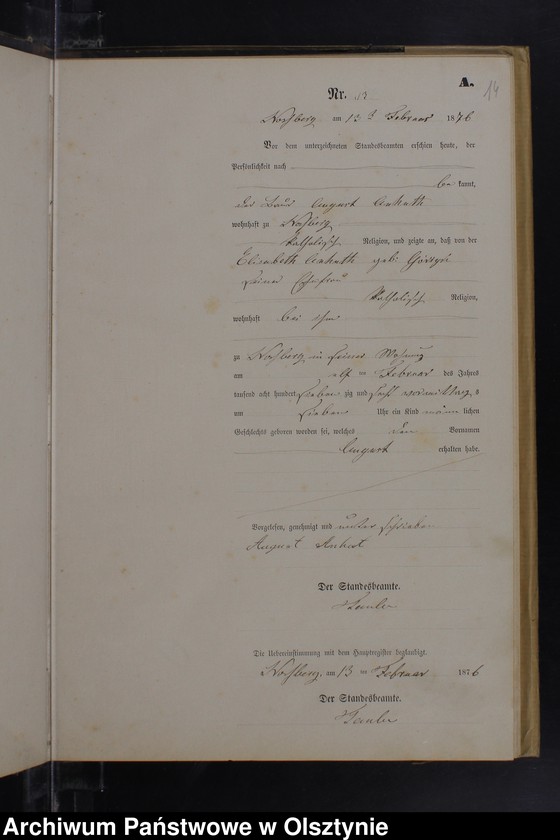 A.
14
Nr. 13
am 13 t Februar 1876
Vor dem unterzeichneten Standesbeamten erschien heute, der
Persönlichkeit nach
be kannt,
der August Ankuth
wohnhaft zu
katholischer Religion, und zeigte an, daß von der
Elisabeth Ankuth geb.
seiner Ehefrau
katholischer Religion,
wohnhaft bei ihm
zu in seiner Wohnung
am elf ten Februar des Jahres
tausend acht hundert sieben zig und sechs vormittags
um sieben Uhr ein Kind männ lichen
Geschlechts geboren worden sei, welches den Vornamen
August erhalten habe.
Vorgelesen, genehmigt und unterschrieben
August
Der Standesbeamte.
Die Uebereinstimmung mit dem Hauptregister beglaubigt.
am 13 ten Februar 1876
Der Standesbeamte.
Archiwum Państwowe w Olsztynie